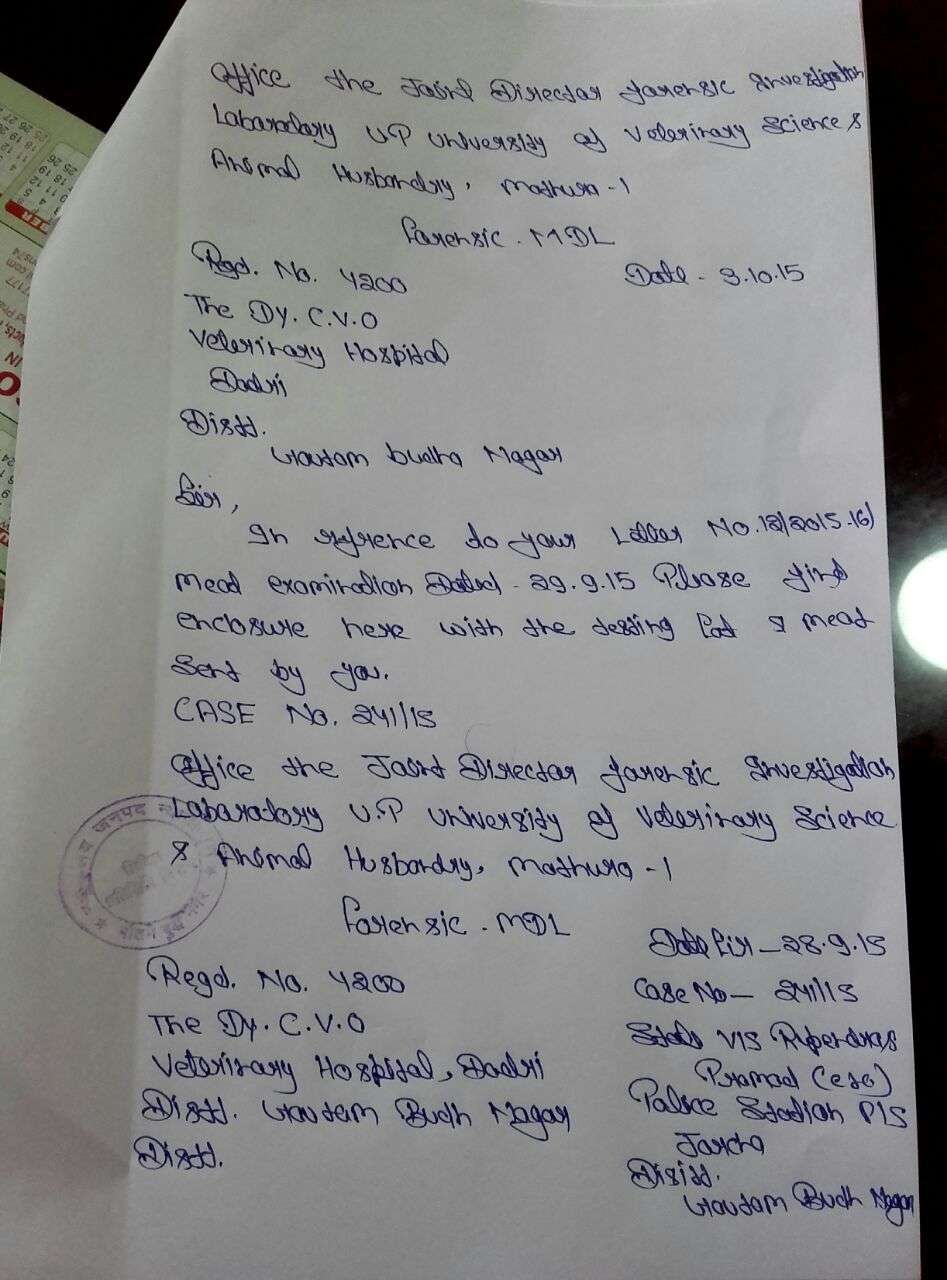 Office the Joint Director forensic Investigation
Labaratory UP University of Veterinary Science &
Animal Husbandry, Mathura-1
Forensic. MDL
Regd. No. 4200 Date - 3.10.15
The Dy. C.V.O
Veterinary Hospital
Dadri
Distt.
Gautam budha Nagar
Sir,
In refrence to your Letter No. 12/2015-16/
meat examination Dated - 29.9.15 Please find
enclosure here with the testing of meat
sent by you.
CASE No. 241/15
Office the Joint Director forensic Investigation
Labaratory U.P University of Veterinary Science
& Animal Husbandry, Mathura-1
Forensic. MDL
Date Fir - 28.9.15
Regd. No. 4200
Case No - 241/15
The Dy. C.V.O
State V/S Rupendra &
Veterinary Hospital, Dadri
Pramad (etc)
Distt. Gautam Budh Nagar
Police Station P/S
Distt.
Jarcha
Distt.
Gautam Budh Nagar
जनपद
गौतम बुद्ध नगर